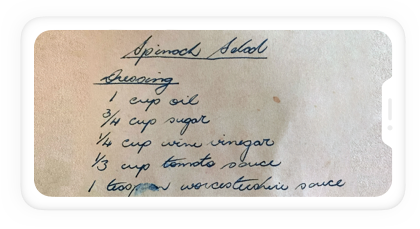 Spinach Salad
Dressing
1 cup oil
3/4 cup sugar
1/4 cup wine vinegar
1/3 cup tomato sauce
1 worcestershire sauce